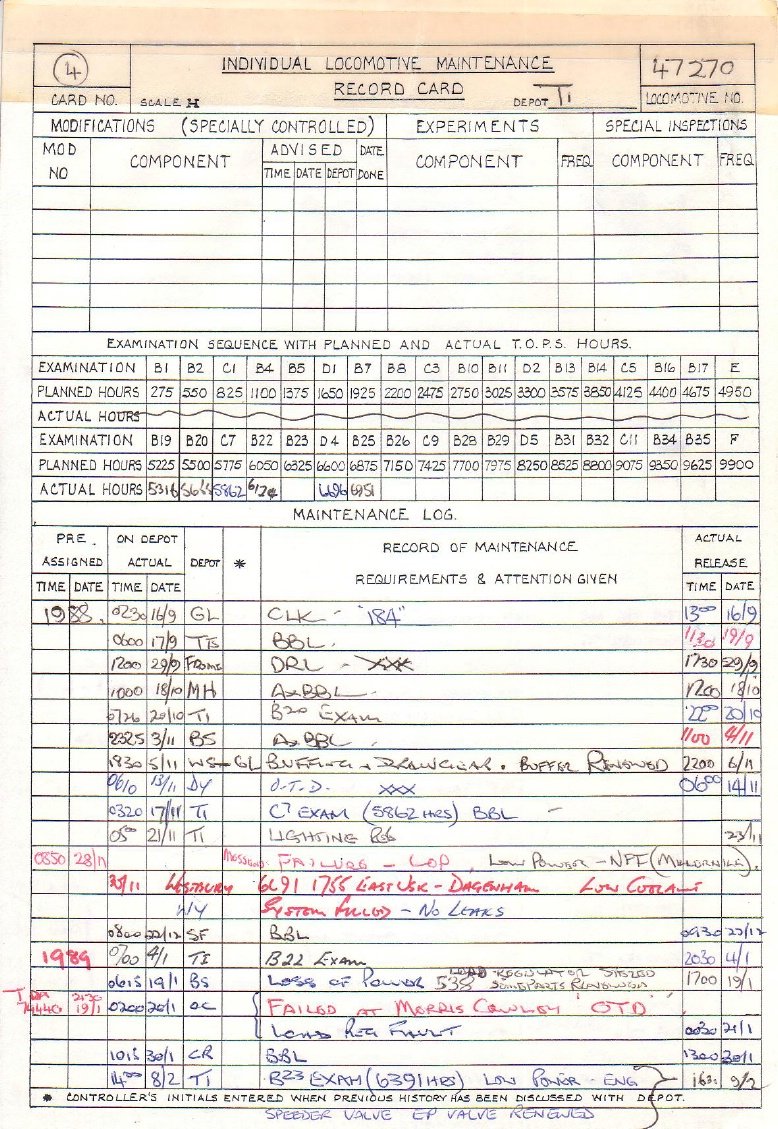 4 INDIVIDUAL LOCOMOTIVE MAINTENANCE 47270
RECORD CARD
CARD NO. SCALE H DEPOT Ti LOCOMOTIVE NO.
MODIFICATIONS (SPECIALLY CONTROLLED) EXPERIMENTS SPECIAL INSPECTIONS
MOD NO COMPONENT ADVISED DATE DONE COMPONENT FREQ. COMPONENT FREQ.
TIME DATE DEPOT
EXAMINATION SEQUENCE WITH PLANNED AND ACTUAL T.O.P.S. HOURS.
EXAMINATION B1 B2 C1 B4 B5 D1 B7 B8 C3 B10 B11 D2 B13 B14 C5 B16 B17 E
PLANNED HOURS 275 550 825 1100 1375 1650 1925 2200 2475 2750 3025 3300 3575 3850 4125 4400 4675 4950
ACTUAL HOURS
EXAMINATION B19 B20 C7 B22 B23 D4 B25 B26 C9 B28 B29 D5 B31 B32 C11 B34 B35 F
PLANNED HOURS 5225 5500 5775 6050 6325 6600 6875 7150 7425 7700 7975 8250 8525 8800 9075 9350 9625 9900
ACTUAL HOURS 5316 5862 6696 6951
MAINTENANCE LOG.
PRE ASSIGNED ON DEPOT ACTUAL DEPOT * RECORD OF MAINTENANCE REQUIREMENTS & ATTENTION GIVEN ACTUAL RELEASE
TIME DATE TIME DATE TIME DATE
1988. 0230 16/9 GL CLK - "184" 1300 16/9
0600 17/9 TTs BBL. 1130 19/9
1200 29/9 FROME DRL - XXX 1730 29/9
1000 18/10 MH AxBBL. 1200 18/10
0726 20/10 Ti B20 EXAM 2200 20/10
2325 3/11 BS AxBBL. 1100 4/11
1830 5/11 WS-GL BUFFING & DRAWGEAR. BUFFER RENEWED 2200 6/11
0610 13/11 DY O.T.D. XXX 0600 14/11
0320 17/11 Ti C7 EXAM (5862 HRS) BBL -
0500 21/11 Ti LIGHTING 23/11
0850 28/11 FAILURE - LOP, LOW POWER - NFF
WESTBURY 6L91 1755 EAST USK - DAGENHAM LOW COOLANT
WY SYSTEM FILLED - NO LEAKS
0800 22/12 SF BBL 0930 22/12
1989 0700 4/1 TI B22 EXAM 2030 4/1
0615 19/1 BS LOSS OF POWER 538 LOAD REGULATOR SEIZED SOME PARTS RENEWED 1700 19/1
2130 19/1 0200 20/1 OC FAILED AT MORRIS COWLEY "OTD"
LOAD REG FAULT 0030 21/1
1015 30/1 CR BBL 1300 30/1
1400 8/2 TI B23 EXAM (6391 HRS) LOW POWER - ENG 9/2
* CONTROLLER'S INITIALS ENTERED WHEN PREVIOUS HISTORY HAS BEEN DISCUSSED WITH DEPOT.
SPEEDER VALVE EP VALVE RENEWED